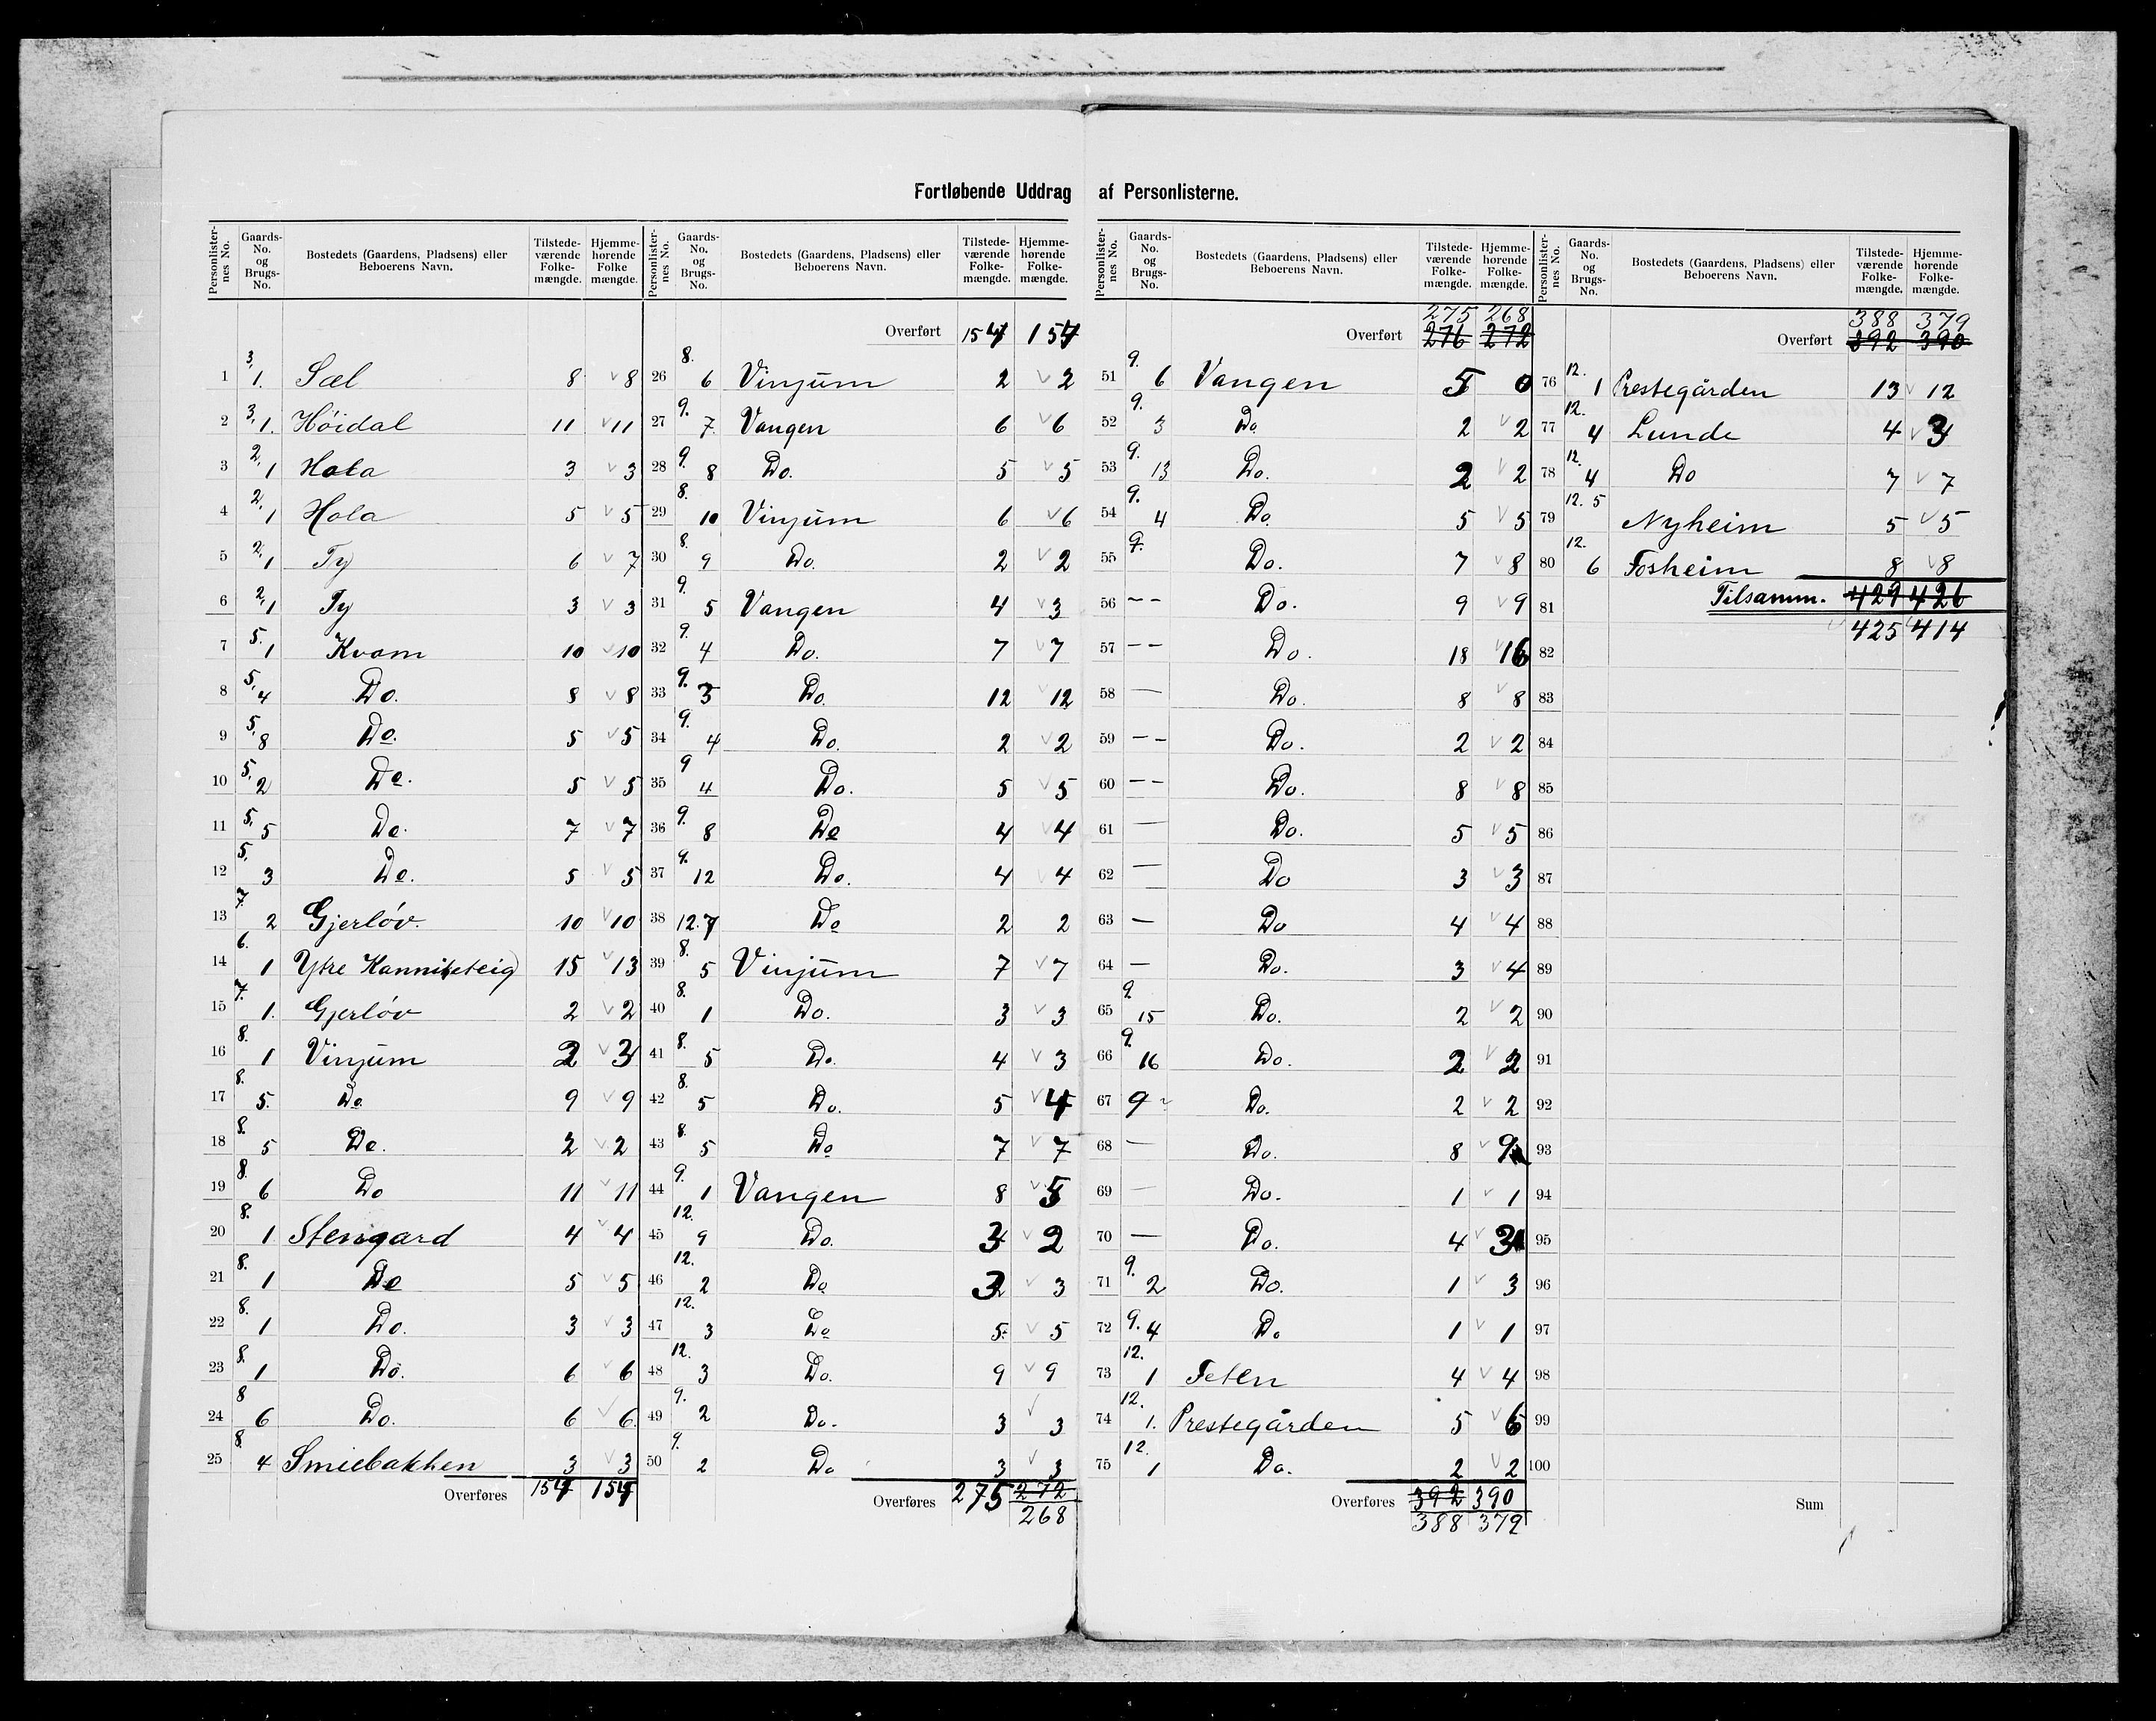 Fortløbende Uddrag af Personlisterne.
Personlisternes No. Gaards-No. og Brugs-No. Bostedets (Gaardens, Pladsens) eller Beboerens Navn. Tilstedeværende Folkemængde. Hjemmehørende Folkemængde.
1 3, 1. Sæl 8 v 8
2 3, 1. Höidal 11 v 11
3 2, 1 Hola 3 v 3
4 2, 1 Hola 5 v 5
5 2, 1 Ty 6 v 7
6 2, 1 Ty 3 v 3
7 5. 1 Kvam 10 v 10
8 5, 4 Do. 8 v 8
9 5, 8 Do. 5 v 5
10 5, 2 Do. 5 v 5
11 5, 5 Do. 7 v 7
12 5, 3 Do. 5 v 5
13 7. 2 Gjerlöv. 10 v 10
14 6. 1 Ytre Kanniketeig 15 v 13
15 7. 1. Gjerlöv 2 v 2
16 8. 1 Vinjum 2 v 3
17 8. 5. Do. 9 v 9
18 8. 5 Do. 2 v 2
19 8. 6 Do 11 v 11
20 8. 1 Stengard 4 v 4
21 8. 1 Do 5 v 5
22 8. 1 Do. 3 v 3
23 8. 1 Do. 6 v 6
24 8 6 Do. 6 v 6
25 8. 4 Smiebakken 3 v 3
Overføres 154 154
Personlisternes No. Gaards-No. og Brugs-No. Bostedets (Gaardens, Pladsens) eller Beboerens Navn. Tilstedeværende Folkemængde. Hjemmehørende Folkemængde.
Overført 154 154
26 8. 6 Vinjum 2 v 2
27 9. 7. Vangen 6 v 6
28 9. 8 Do. 5 v 5
29 8. 10 Vinjum 6 v 6
30 8. 9 Do. 2 v 2
31 9. 5 Vangen 4 v 3
32 9. 4 Do. 7 v 7
33 9. 3 Do. 12 v 12
34 9. 4 Do. 2 v 2
35 9 4 Do. 5 v 5
36 9. 8 Do 4 v 4
37 9. 12 Do. 4 v 4
38 12. 7 Do 2 2
39 8. 5 Vinjum 7 v 7
40 8. 1 Do. 3 v 3
41 8. 5 Do. 4 v 3
42 8. 5 Do. 5 v 4
43 8. 5 Do 7 v 7
44 9. 1 Vangen 8 v 5
45 12. 9 Do. 3 v 2
46 12. 2 Do 3 v 3
47 12. 3 Do 5. v 5
48 12. 3 Do. 9 v 9
49 9. 2 Do. 3 v 3
50 9. 2 Do 3 v 3
Overføres 275 272
268
Personlisternes No. Gaards-No. og Brugs-No. Bostedets (Gaardens, Pladsens) eller Beboerens Navn. Tilstedeværende Folkemængde. Hjemmehørende Folkemængde.
275 268
Overført 276 272
51 9. 6 Vangen 5 0
52 9. 3 Do. 2 v 2
53 9. 13 Do. 2 v 2
54 9. 4 Do. 5 v 5
55 9. Do. 7 v 8
56 -- Do. 9 v 9
57 -- Do. 18 v 16
58 — Do. 8 v 8
59 -- Do. 2 v 2
60 -- Do. 8 v 8
61 — Do. 5 v 5
62 — Do 3 v 3
63 — Do 4 v 4
64 — Do. 3 v 4
65 9. 15 Do. 2 v 2
66 9. 16 Do. 2 v 2
67 9 - Do. 2 v 2
68 — Do. 8 v 9
69 — Do. 1 v 1
70 — Do. 4 v 3
71 9. 2 Do. 1 v 3
72 9. 4 Do 1 v 1
73 12. 1 Teten 4 v 4
74 12. 1. Prestegården 5 v 6
75 12. 1 Do. 2 v 2
Overføres 392 390
388 379
Personlisternes No. Gaards-No. og Brugs-No. Bostedets (Gaardens, Pladsens) eller Beboerens Navn. Tilstedeværende Folkemængde. Hjemmehørende Folkemængde.
388 379
Overført 392 390
76 12. 1 Prestegården 13 v 12
77 12. 4 Lunde 4 v 3
78 12. 4 Do 7 v 7
79 12. 5 Nyheim 5 v 5
80 12. 6 Fosheim 8 v 8
81 Tilsamm. 429 426
425 414
82
83
84
85
86
87
88
89
90
91
92
93
94
95
96
97
98
99
100
Sum